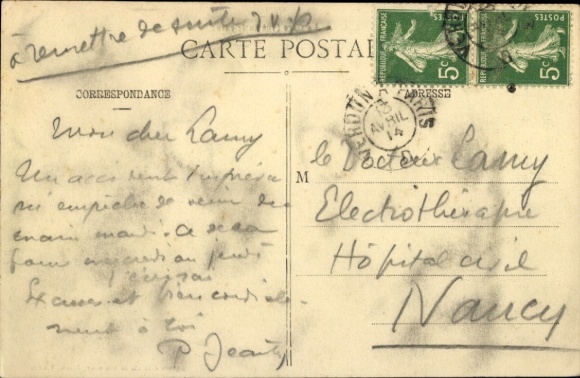 à remettre de suite S.V.P.
CARTE POSTALE
CORRESPONDANCE
ADRESSE
RÉPUBLIQUE FRANÇAISE
POSTES
5c
RÉPUBLIQUE FRANÇAISE
POSTES
5c
VERDUN
PARIS
AVRIL
14
Mon cher Lamy
Un accident imprévu
m'empêche de venir
demain mardi. Ce sera
pour mercredi ou jeudi
Excuses et bien cordiale
ment à toi
P.
M
le Docteur Lamy
Electrothérapie
Hôpital civil
Nancy